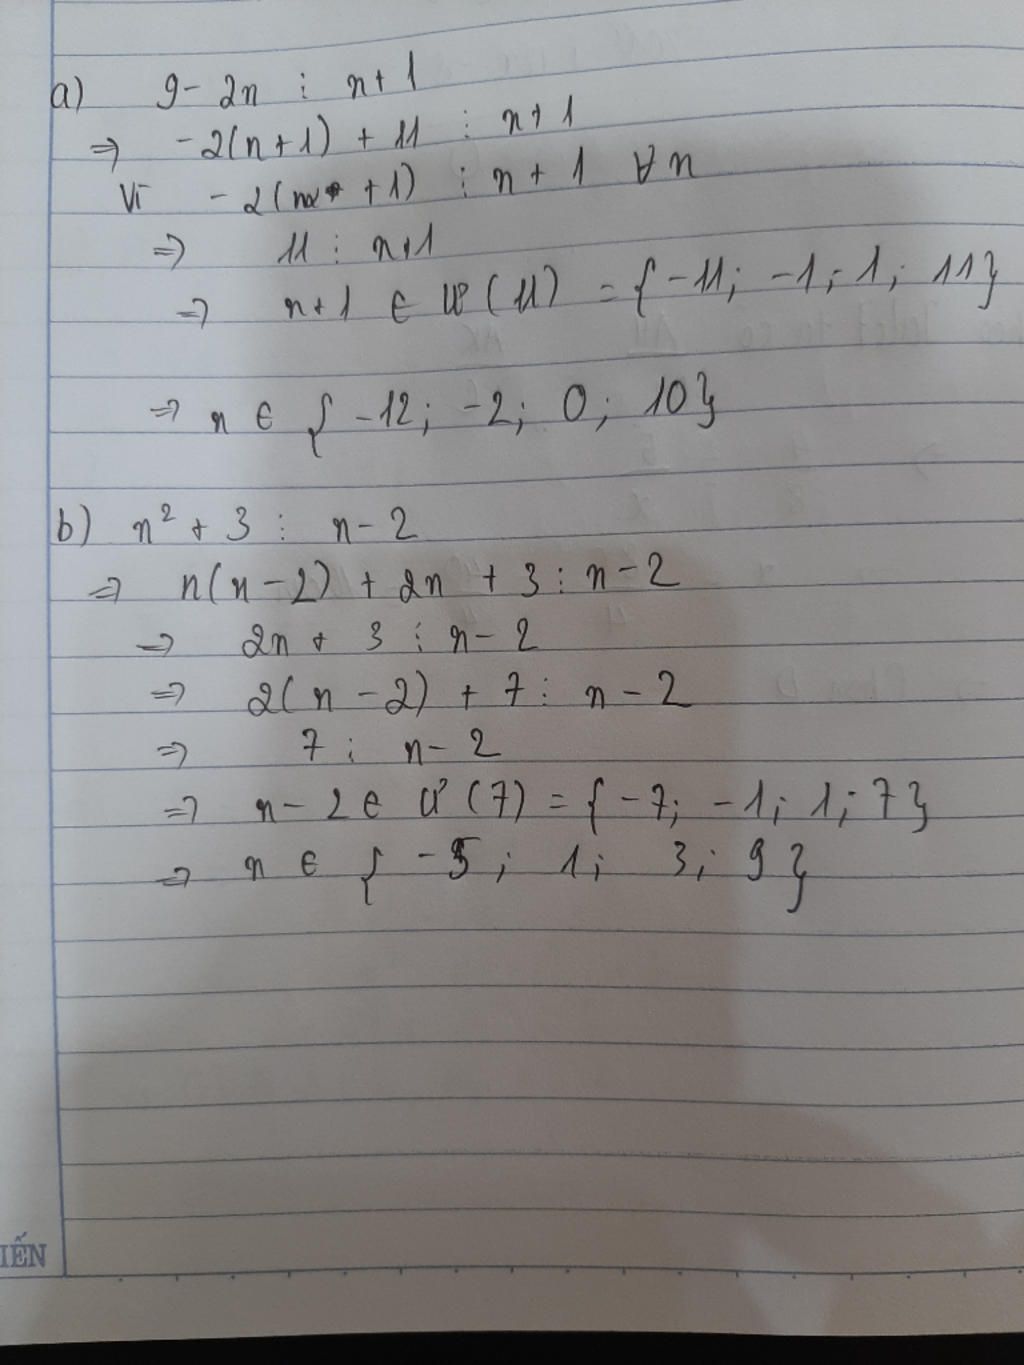 a) 9 - 2n ⋮ n + 1
⇒ -2(n + 1) + 11 ⋮ n + 1
Vì -2(n + 1) ⋮ n + 1 ∀ n
⇒ 11 ⋮ n + 1
⇒ n + 1 ∈ Ư(11) = {-11; -1; 1; 11}
⇒ n ∈ {-12; -2; 0; 10}
b) n² + 3 ⋮ n - 2
⇒ n(n - 2) + 2n + 3 ⋮ n - 2
⇒ 2n + 3 ⋮ n - 2
⇒ 2(n - 2) + 7 ⋮ n - 2
⇒ 7 ⋮ n - 2
⇒ n - 2 ∈ Ư(7) = {-7; -1; 1; 7}
⇒ n ∈ {-5; 1; 3; 9}
IẾN